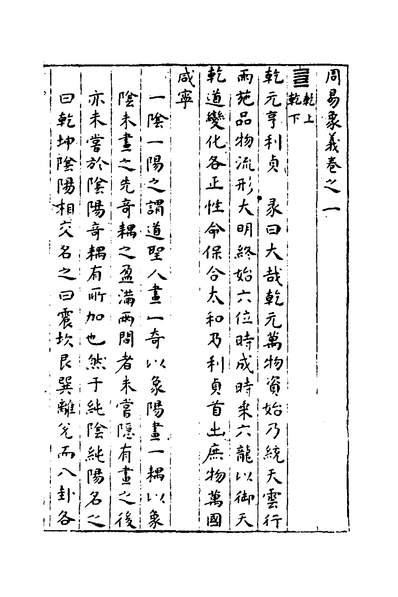 周易象義卷之一
乾上
乾下
乾元亨利貞 彖曰大哉乾元萬物資始乃統天雲行
雨施品物流形大明終始六位時成時乘六龍以御天
乾道變化各正性命保合太和乃利貞首出庶物萬國
咸寧
一陰一陽之謂道聖人畫一奇以象陽畫一耦以象
陰未畫之先奇耦之盈滿兩間者未嘗隱有畫之後
亦未嘗於陰陽奇耦有所加也然于純陰純陽名之
曰乾坤陰陽相交名之曰震坎艮巽離兌而八卦各